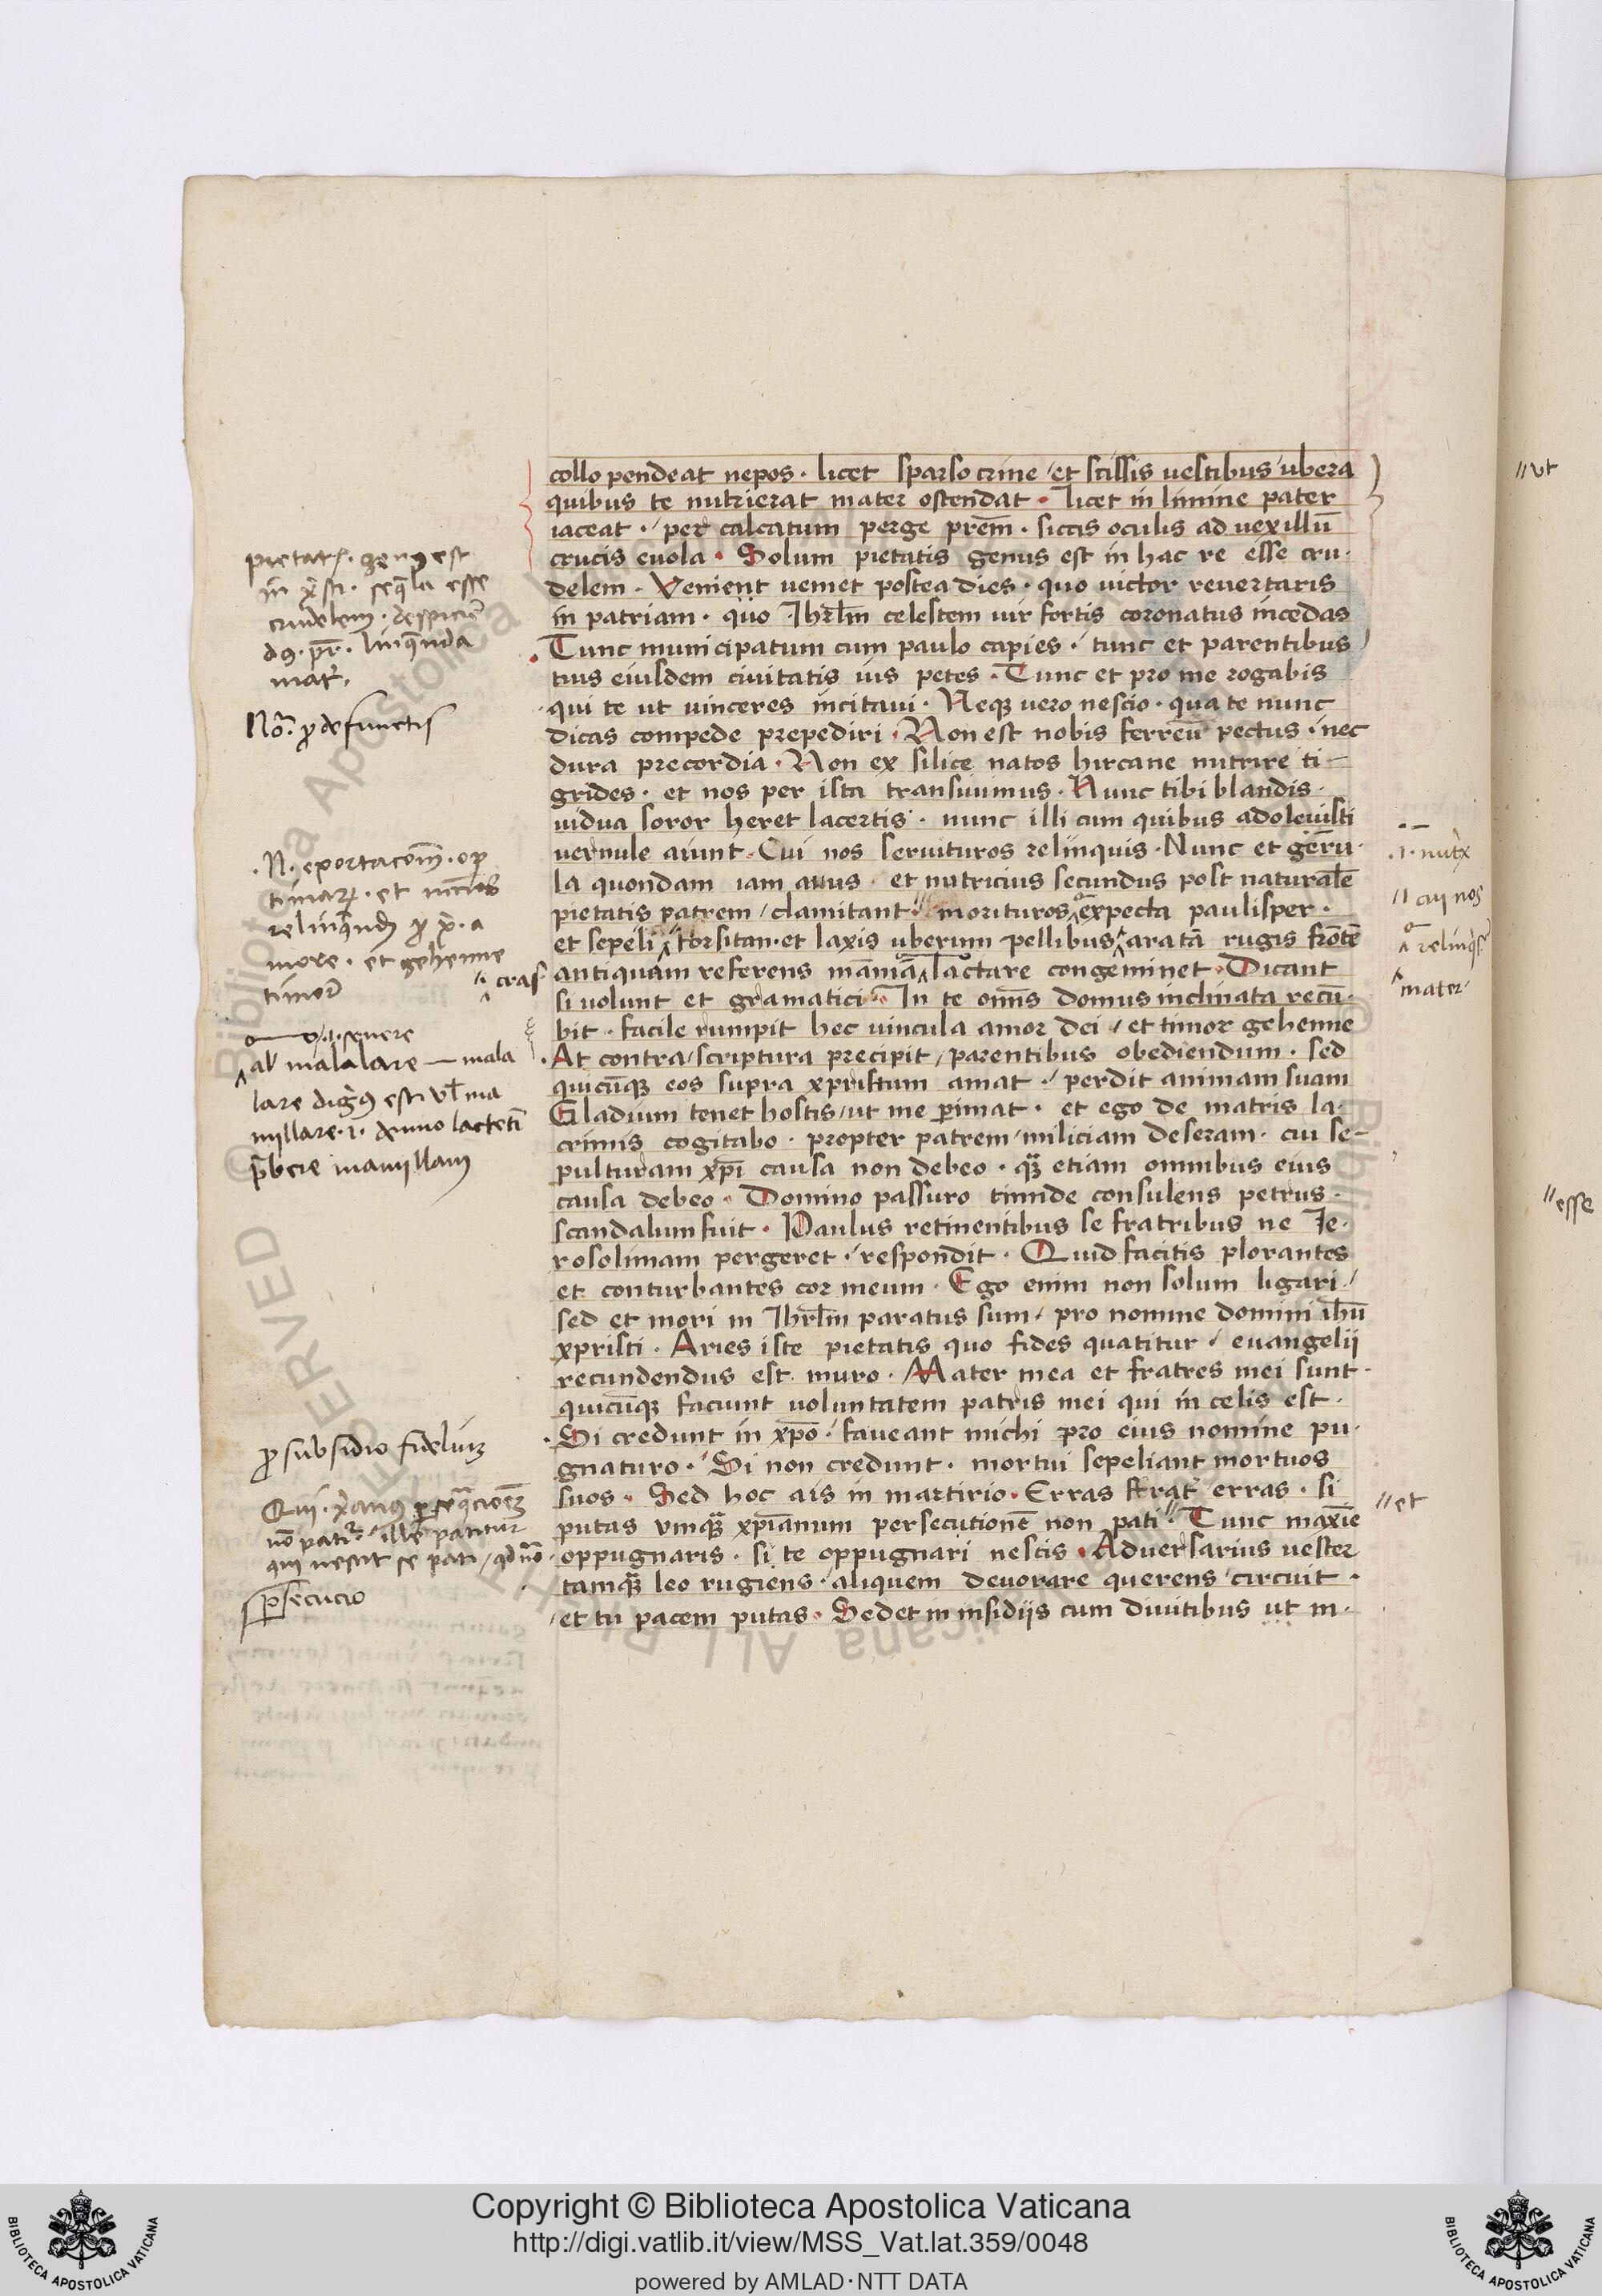 collo pendeat nepos · licet sparso crine / et scissis uestibus / ubera
quibus te nutrierat mater ostendat · licet in limine pater
iaceat · / per calcatum perge prem̄ · siccis oculis ad uexillū
crucis euola · Solum pietatis genus est in hac re esse cru-
delem · Venient ueniet postea dies · quo uictor reuertaris
in patriam · quo Jhrl̄m celestem uir fortis coronatus incedas
Tunc municipatum cum paulo capies · / tunc et parentibus
tuis eiusdem ciuitatis ius petes · Tunc et pro me rogabis
qui te ut uinceres incitaui · Neqꝫ uero nescio · qua te nunc
dicas compede prepediri · Non est nobis ferreū pectus · nec
dura precordia · Non ex silice natos hircane nutrire ti-
grides · et nos per ista transiuimus · Nunc tibi blandis
uidua soror heret lacertis · nunc illi cum quibus adoleuisti
uernule aiunt · Cui nos seruituros relinquis · Nunc et gerū-
la quondam iam anus · et nutricius secundus post naturalē
pietatis patrem / clamitant · morituros expecta paulisper ·
et sepeli forsitan · et laxis uberum pellibus aratā rugis frōtē
antiquam referens māmā lactare congeminet · Dicant
si uolunt et gramatici · In te om̄s domus inclinata recū-
bit · facile rumpit hec uincula amor dei / et timor gehenne
At contra / scriptura precipit / parentibus obediendum · sed
quicūqꝫ eos supra xpristum amat · / perdit animam suam
Gladium tenet hostis / ut me ꝑimat · et ego de matris la-
crimis cogitabo · propter patrem / miliciam deseram · cui se-
pulturam xp̄i causa non debeo · qꝫ etiam omnibus eius
causa debeo · Domino passuro timide consulens petrus ·
scandalum fuit · Paulus retinentibus se fratribus ne Je-
rosolimam pergeret · / respondit · Quid facitis plorantes
et conturbantes cor meum · Ego enim non solum ligari · /
sed et mori in Jhrl̄m paratus sum / pro nomine domini ih̄u
xpristi · Aries iste pietatis quo fides quatitur / euangelii
recundendus est muro · Mater mea et fratres mei sunt ·
quicūqꝫ faciunt uoluntatem patris mei qui in celis est ·
Si credunt in xp̄o · / faueant michi pro eius nomine pu-
gnaturo · / Si non credunt · mortui sepeliant mortuos
suos · Sed hoc ais in martirio · Erras frat̄ erras · si
putas vmqꝫ xp̄ianum persecutionē non pati · Tunc maxīe
oppugnaris · si te oppugnari nescis · Aduersarius uester
tamqꝫ leo rugiens · aliquem deuorare querens / circuit ·
/ et tu pacem putas · Sedet in insidijs cum diuitibus ut in-
crudelem
linq̄nda
ꝓ defunctis
et gehenne
cras
al malalare — mala
ꝓ subsidio fideliuꝫ
ꝑsecucio
cui nos
mater
// et
// vt
// esse
Copyright © Biblioteca Apostolica Vaticana
http://digi.vatlib.it/view/MSS_Vat.lat.359/0048
powered by AMLAD·NTT DATA
BIBLIOTECA APOSTOLICA VATICANA
BIBLIOTECA APOSTOLICA VATICANA